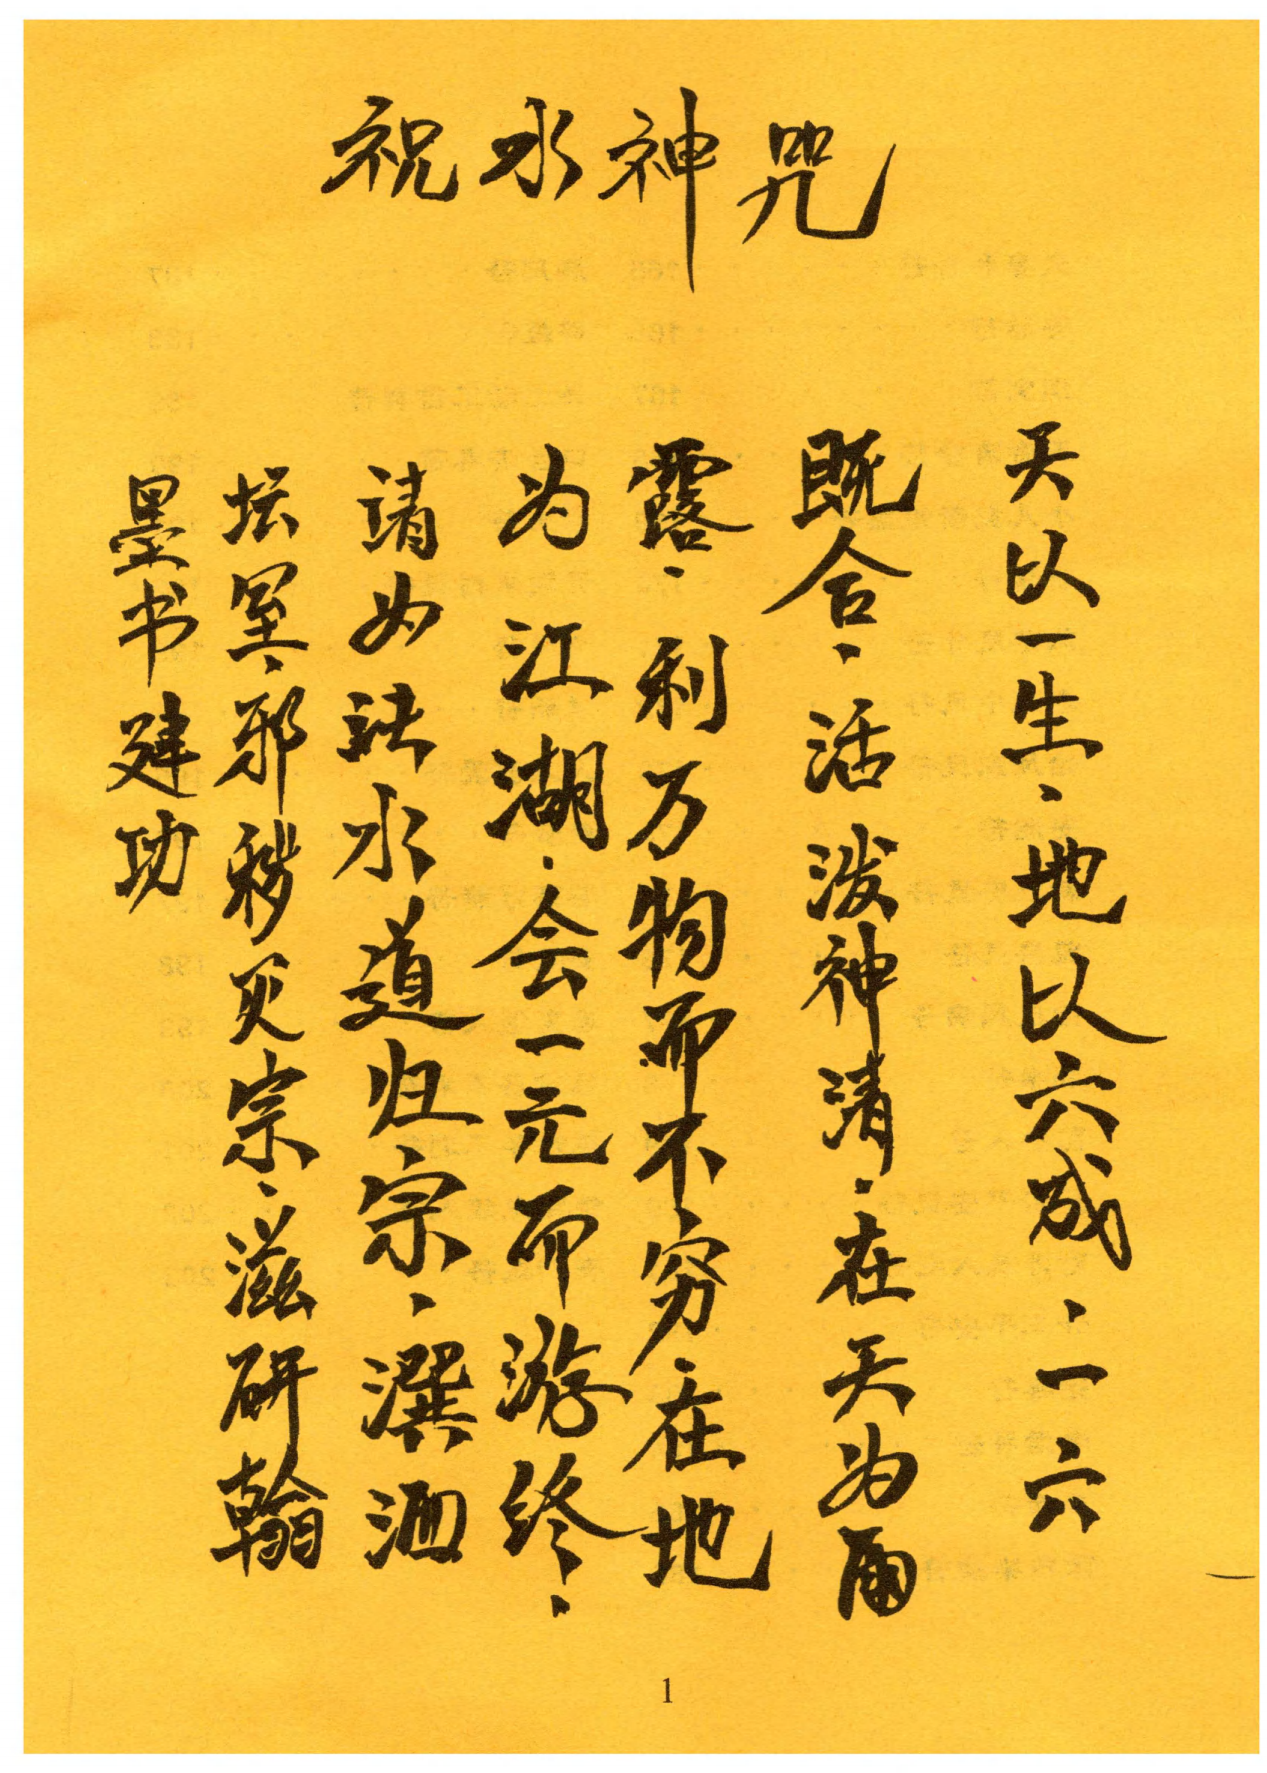 祝水神咒
天以一生、地以六成、一六
既合、活泼神清、在天为雨
露、利万物而不穷、在地
为江湖、会一元而游终、
请如法水道归宗、潠洒
坛室、邪秽灭宗、滋研翰
墨书建功
1